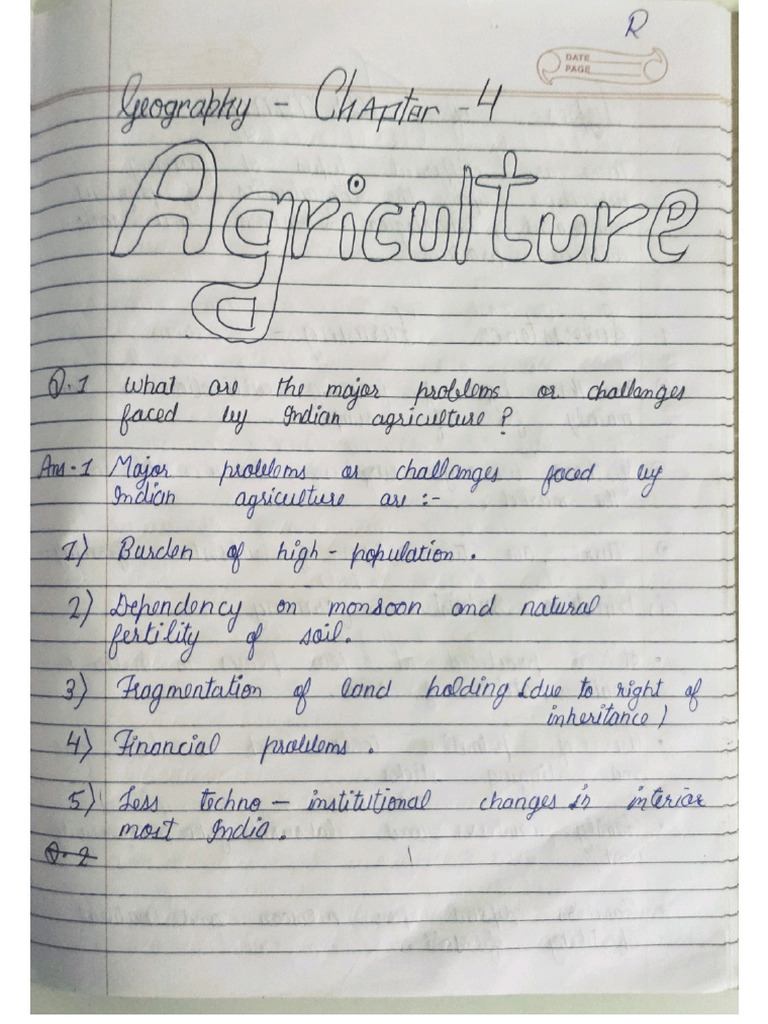 R
DATE
PAGE
Geography - Chapter - 4
Agriculture
Q.1 What are the major problems or challanges
faced by Indian agriculture ?
Ans-1 Major problems or challanges faced by
Indian agriculture are :-
1) Burden of high - population .
2) Dependency on monsoon and natural
fertility of soil.
3) Fragmentation of land holding (due to right of
inheritance)
4) Financial problems .
5) Less techno - institutional changes in interior
most India .
Q.2